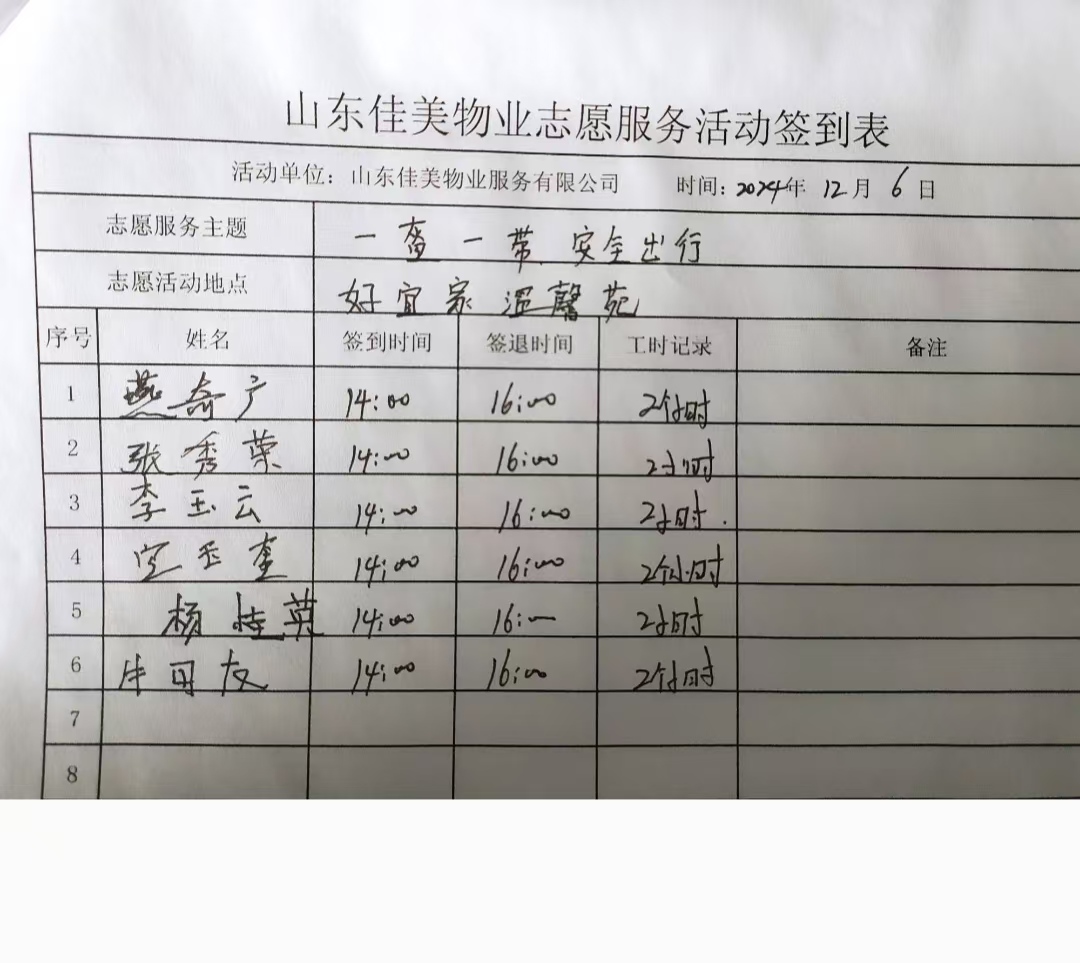 山东佳美物业志愿服务活动签到表
活动单位：山东佳美物业服务有限公司 时间：2024年 12月 6日
志愿服务主题 一盔一带 安全出行
志愿活动地点 好宜家温馨苑
序号 姓名 签到时间 签退时间 工时记录 备注
1 燕奇广 14:00 16:00 2个小时
2 张秀荣 14:00 16:00 2小时
3 李玉云 14:00 16:00 2小时.
4 14:00 16:00 2个小时
5 杨桂英 14:00 16:00 2小时
6 14:00 16:00 2个小时
7
8